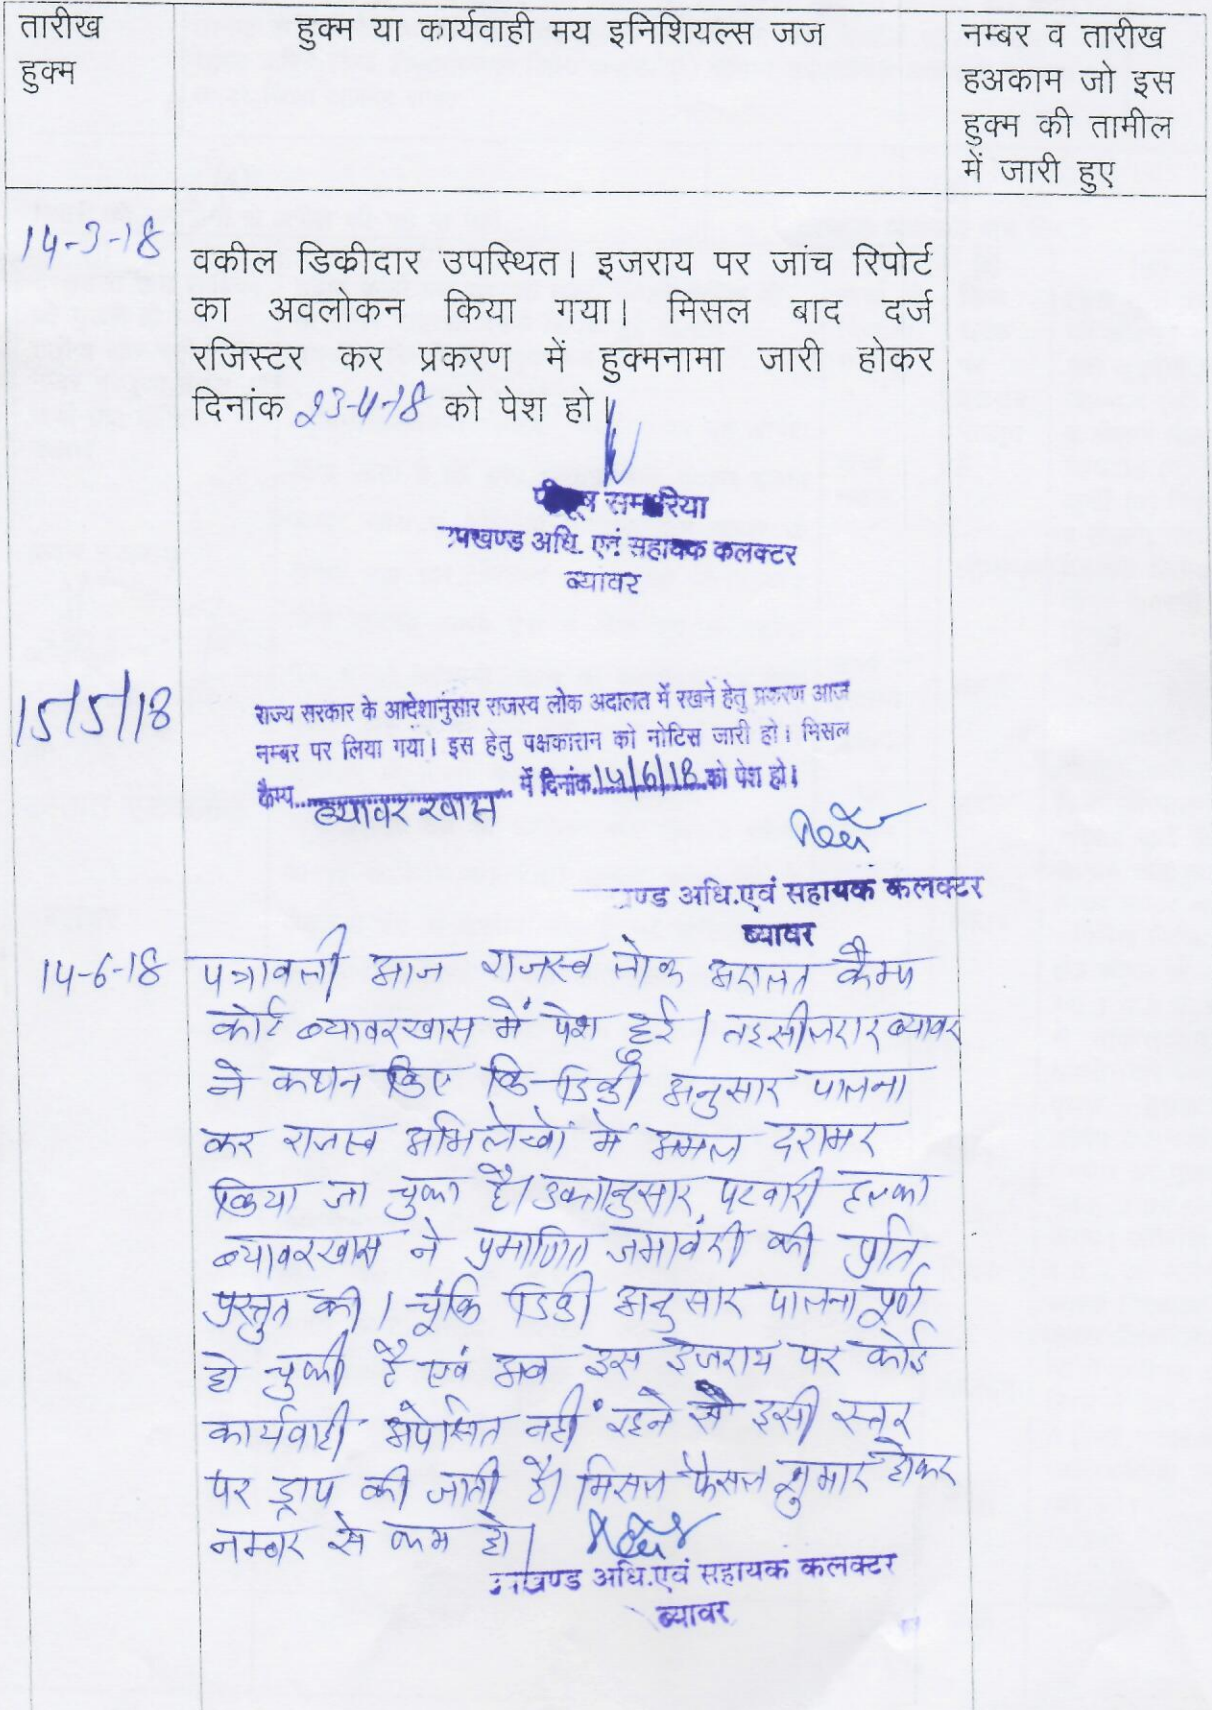 तारीख
हुक्म
हुक्म या कार्यवाही मय इनिशियल्स जज
नम्बर व तारीख
हअकाम जो इस
हुक्म की तामील
में जारी हुए
14-3-18
वकील डिक्रीदार उपस्थित। इजराय पर जांच रिपोर्ट
का अवलोकन किया गया। मिसल बाद दर्ज
रजिस्टर कर प्रकरण में हुक्मनामा जारी होकर
दिनांक 23-4-18 को पेश हो।
समारिया
उपखण्ड अधि. एवं सहायक कलक्टर
ब्यावर
15/5/18
राज्य सरकार के आदेशानुसार राजस्व लोक अदालत में रखने हेतु प्रकरण आज
नम्बर पर लिया गया। इस हेतु पक्षकारान को नोटिस जारी हो। मिसल
कैम्प ब्यावर खास में दिनांक 14/6/18 को पेश हो।
खण्ड अधि.एवं सहायक कलक्टर
ब्यावर
14-6-18
पत्रावली आज राजस्व लोक अदालत कैम्प
कोर्ट ब्यावरखास में पेश हुई। तहसीलदार ब्यावर
ने कथन किए कि डिक्री अनुसार पालना
कर राजस्व अभिलेखों में अमल दरामद
किया जा चुका है। उक्तानुसार पटवारी हल्का
ब्यावरखास ने प्रमाणित जमाबंदी की प्रति
प्रस्तुत की। चूंकि डिक्री अनुसार पालना पूर्ण
हो चुकी है एवं अब इस इजराय पर कोई
कार्यवाही अपेक्षित नहीं रहने से इसी स्तर
पर ड्राप की जाती है। मिसल फैसल शुमार होकर
नम्बर से कम हो।
उपखण्ड अधि.एवं सहायक कलक्टर
ब्यावर